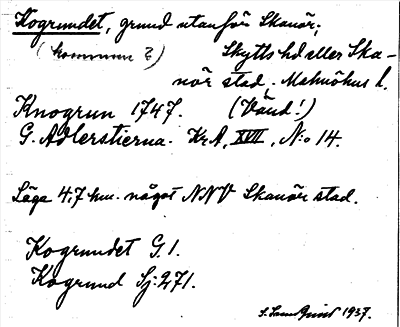 Kogrundet, grund utanför Skanör,
(kommun?) Skytts hd eller Ska-
nör stad, Malmöhus l.
Knogrun 1747. (Vänd!)
G. Adlerstierna. Kr.A, XVII, N:o 14.
Läge 4,7 km. något NNV Skanör stad.
Kogrundet G.1.
Kogrund Sj:271.
1937.